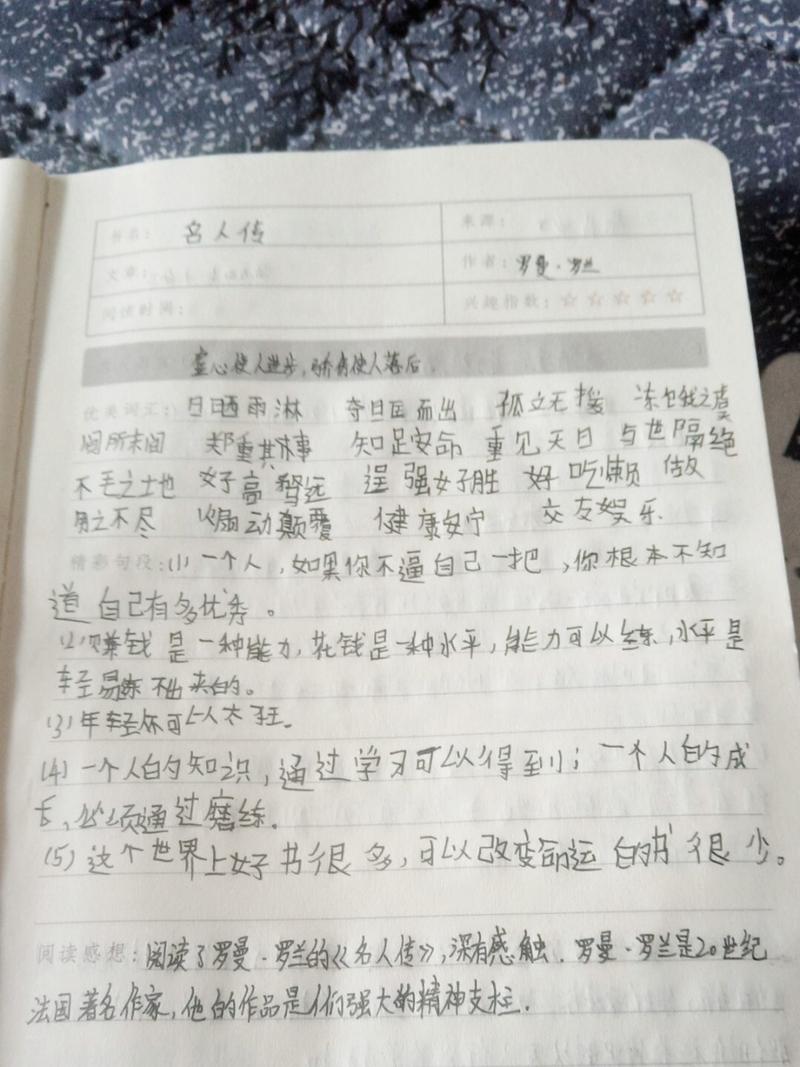 书名： 名人传 来源：
文章： 作者： 罗曼·罗兰
阅读时间： 兴趣指数：☆☆☆☆☆
虚心使人进步，骄傲使人落后。
优美词汇： 日晒雨淋 夺眶而出 孤立无援
闻所未闻 郑重其事 知足安命 重见天日 与世隔绝
不毛之土也 好高骛远 逞强好胜 好吃懒做
用之不尽 煽动颠覆 健康安宁 交友娱乐
精彩句段：(1)一个人，如果你不逼自己一把，你根本不知
道自己有多优秀。
(2)赚钱是一种能力，花钱是一种水平，能力可以练，水平是
轻易练不出来的。
(3)年轻你可以太狂。
(4)一个人的知识，通过学习可以得到；一个人的成
长，必须通过磨练。
(5)这个世界上好书很多，可以改变命运的书很少。
阅读感想：阅读了罗曼·罗兰的《名人传》，深有感触．罗曼·罗兰是20世纪
法国著名作家，他的作品是人们强大的精神支柱．